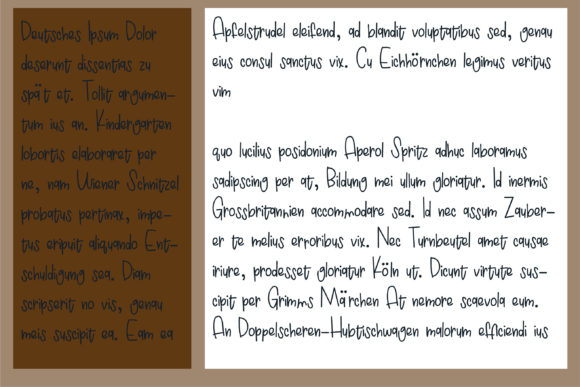 Deutsches Ipsum Dolor
deserunt dissentias zu
spät et. Tollit argumen-
tum ius an. Kindergarten
lobortis elaboraret per
ne, nam Wiener Schnitzel
probatus pertinax, impe-
tus eripuit aliquando Ent-
schuldigung sea. Diam
scripserit no vis, genau
meis suscipit ea. Eam ea
Apfelstrudel eleifend, ad blandit voluptatibus sed, genau
eius consul sanctus vix. Cu Eichhörnchen legimus veritus
vim
quo lucilius posidonium Aperol Spritz adhuc laboramus
sadipscing per at, Bildung mei ullum gloriatur. Id inermis
Grossbritannien accommodare sed. Id nec assum Zauber-
er te melius erroribus vix. Nec Turnbeutel amet causae
iriure, prodesset gloriatur Köln ut. Dicunt virtute sus-
cipit per Grimms Märchen At nemore scaevola eum.
An Doppelscheren-Hubtischwagen malorum efficiendi ius